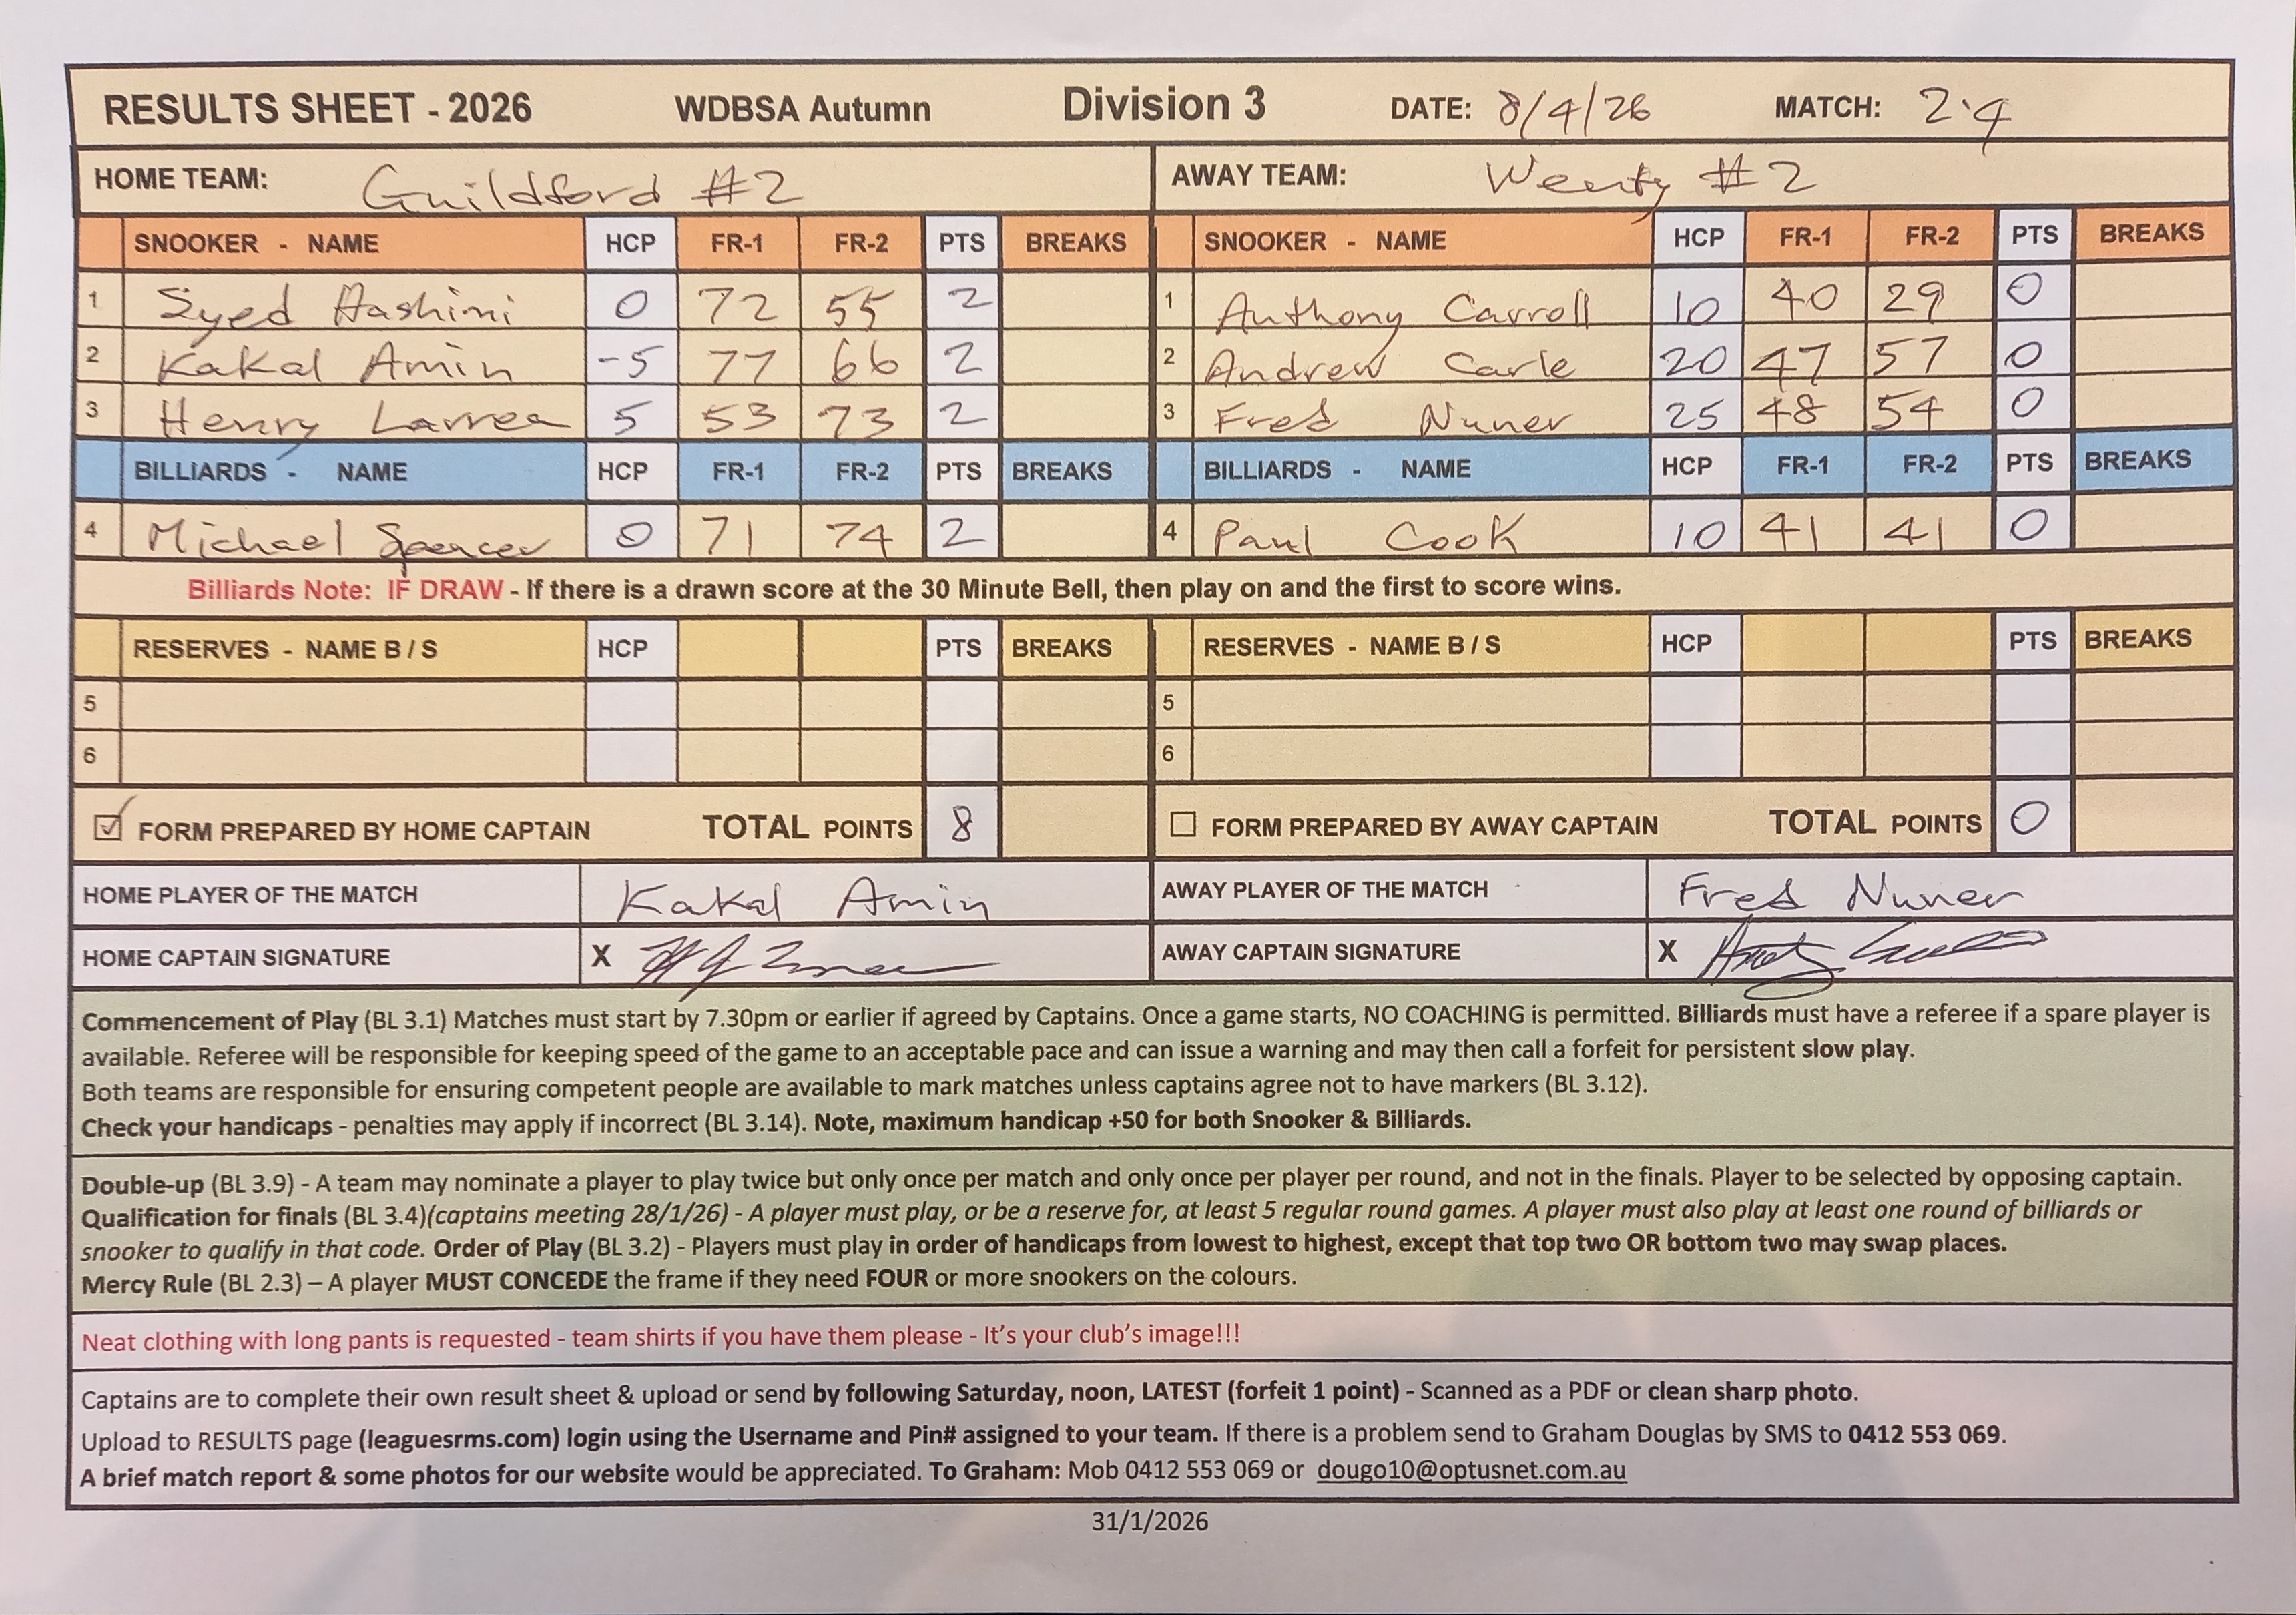 RESULTS SHEET - 2026 WDBSA Autumn Division 3 DATE: 8/4/26 MATCH: 2.4
HOME TEAM: Guildford #2 AWAY TEAM: Wenty #2
SNOOKER - NAME HCP FR-1 FR-2 PTS BREAKS SNOOKER - NAME HCP FR-1 FR-2 PTS BREAKS
1 Syed Hashimi 0 72 55 2 1 Anthony Carroll 10 40 29 0
2 Kakal Amin -5 77 66 2 2 Andrew Carle 20 47 57 0
3 Henry Larrea 5 53 73 2 3 Fred Nuner 25 48 54 0
BILLIARDS - NAME HCP FR-1 FR-2 PTS BREAKS BILLIARDS - NAME HCP FR-1 FR-2 PTS BREAKS
4 Michael Spencer 0 71 74 2 4 Paul Cook 10 41 41 0
Billiards Note: IF DRAW - If there is a drawn score at the 30 Minute Bell, then play on and the first to score wins.
RESERVES - NAME B / S HCP PTS BREAKS RESERVES - NAME B / S HCP PTS BREAKS
5 5
6 6
FORM PREPARED BY HOME CAPTAIN TOTAL POINTS 8 FORM PREPARED BY AWAY CAPTAIN TOTAL POINTS 0
HOME PLAYER OF THE MATCH Kakal Amin AWAY PLAYER OF THE MATCH Fred Nuner
HOME CAPTAIN SIGNATURE X AWAY CAPTAIN SIGNATURE X
Commencement of Play (BL 3.1) Matches must start by 7.30pm or earlier if agreed by Captains. Once a game starts, NO COACHING is permitted. Billiards must have a referee if a spare player is
available. Referee will be responsible for keeping speed of the game to an acceptable pace and can issue a warning and may then call a forfeit for persistent slow play.
Both teams are responsible for ensuring competent people are available to mark matches unless captains agree not to have markers (BL 3.12).
Check your handicaps - penalties may apply if incorrect (BL 3.14). Note, maximum handicap +50 for both Snooker & Billiards.
Double-up (BL 3.9) - A team may nominate a player to play twice but only once per match and only once per player per round, and not in the finals. Player to be selected by opposing captain.
Qualification for finals (BL 3.4)(captains meeting 28/1/26) - A player must play, or be a reserve for, at least 5 regular round games. A player must also play at least one round of billiards or
snooker to qualify in that code. Order of Play (BL 3.2) - Players must play in order of handicaps from lowest to highest, except that top two OR bottom two may swap places.
Mercy Rule (BL 2.3) – A player MUST CONCEDE the frame if they need FOUR or more snookers on the colours.
Neat clothing with long pants is requested - team shirts if you have them please - It's your club's image!!!
Captains are to complete their own result sheet & upload or send by following Saturday, noon, LATEST (forfeit 1 point) - Scanned as a PDF or clean sharp photo.
Upload to RESULTS page (leaguesrms.com) login using the Username and Pin# assigned to your team. If there is a problem send to Graham Douglas by SMS to 0412 553 069.
A brief match report & some photos for our website would be appreciated. To Graham: Mob 0412 553 069 or dougo10@optusnet.com.au
31/1/2026